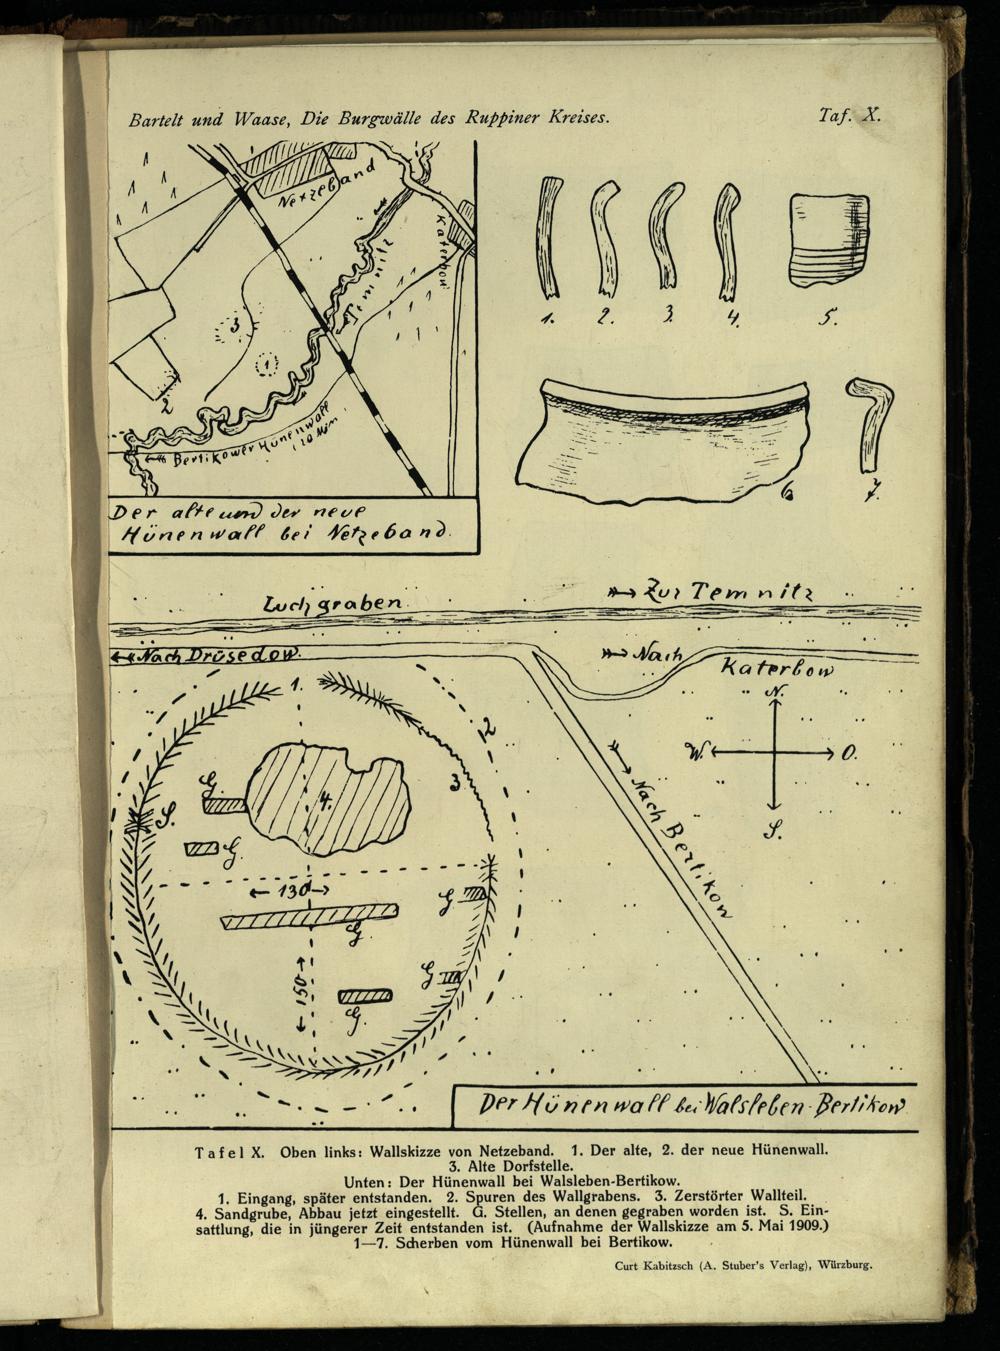 Bartelt und Waase, Die Burgwälle des Ruppiner Kreises.
Taf. X.
Netzeband
Katerbow
Temnitz
3
1
2
Bertikower Hünenwall
10 Min
Der alte und der neue
Hünenwall bei Netzeband.
1.
2.
3.
4.
5.
6
7.
Luchgraben
Zur Temnitz
Nach Drüsedow.
Nach
Katerbow
1.
2
3
4.
G.
S.
G.
G
G
130
G.
150
G.
N.
W.
O.
S.
Nach Bertikow
Der Hünenwall bei Walsleben-Bertikow
Tafel X. Oben links: Wallskizze von Netzeband. 1. Der alte, 2. der neue Hünenwall.
3. Alte Dorfstelle.
Unten: Der Hünenwall bei Walsleben-Bertikow.
1. Eingang, später entstanden. 2. Spuren des Wallgrabens. 3. Zerstörter Wallteil.
4. Sandgrube, Abbau jetzt eingestellt. G. Stellen, an denen gegraben worden ist. S. Ein-
sattlung, die in jüngerer Zeit entstanden ist. (Aufnahme der Wallskizze am 5. Mai 1909.)
1—7. Scherben vom Hünenwall bei Bertikow.
Curt Kabitzsch (A. Stuber's Verlag), Würzburg.